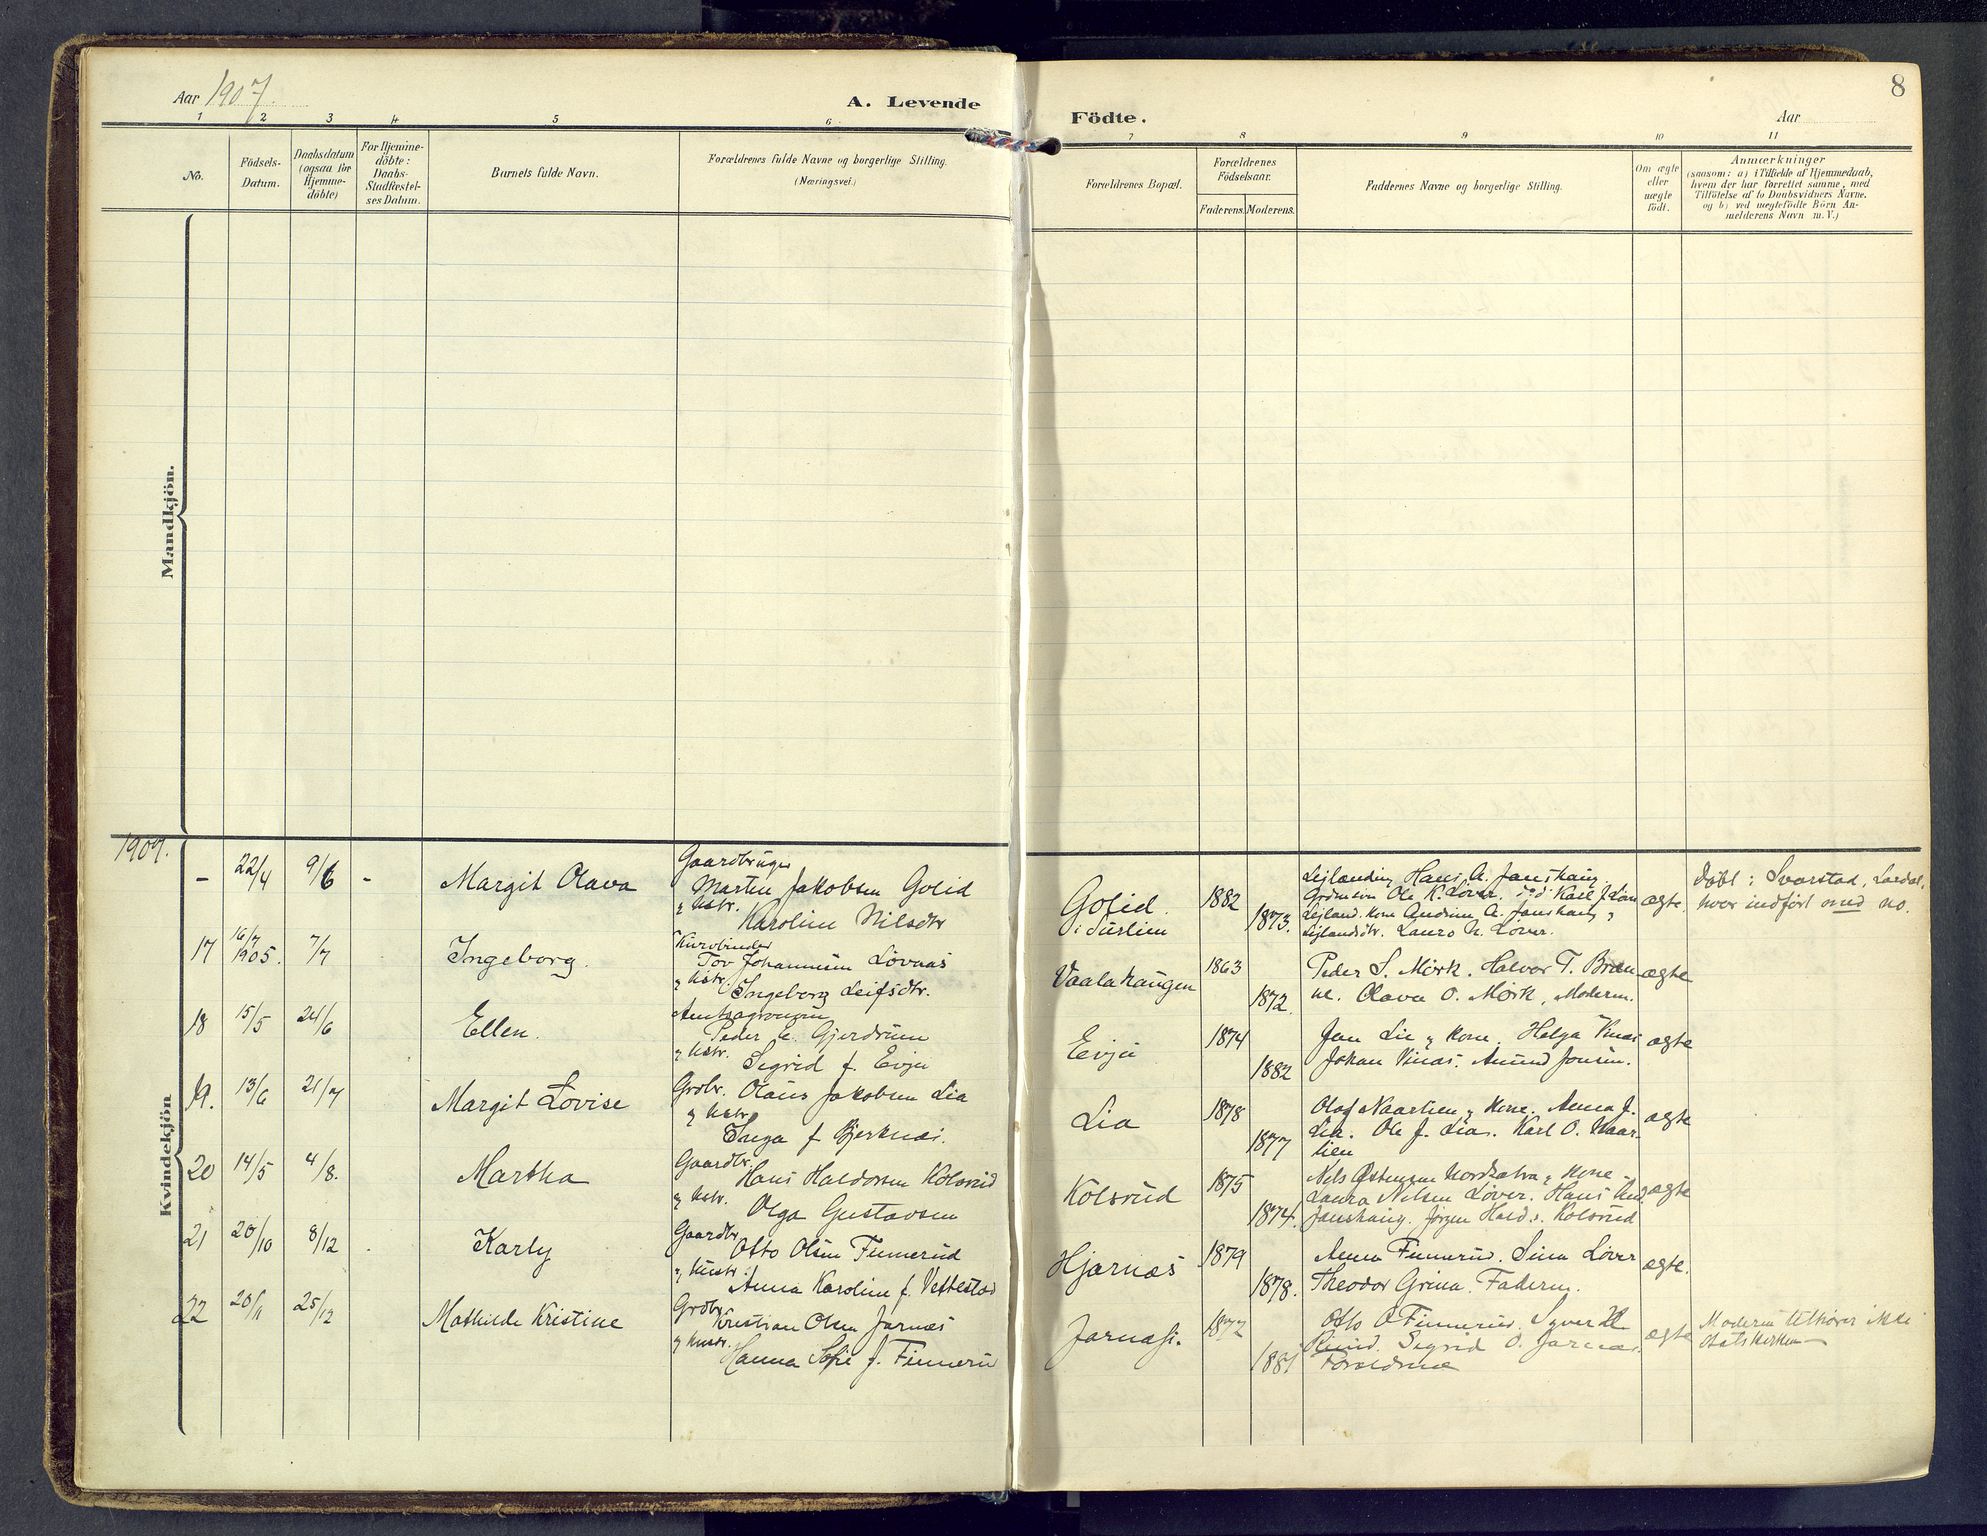 Aar 1907.
A. Levende
Födte.
Aar
8
1 2 3 4 5 6
7 8 9 10 11
No.
Födsels-
Datum.
Daabsdatum
(ogsaa for
Hjemme-
döbte)
For Hjemme-
döbte:
Daabs-
Stadfæstel-
ses Datum.
Barnets fulde Navn.
Forældrenes fulde Navne og borgerlige Stilling.
(Næringsvei.)
Forældrenes Bopæl.
Forældrenes
Födselsaar.
Faderens. Moderens.
Faddernes Navne og borgerlige Stilling.
Om ægte
eller
uægte
födt.
Anmærkninger
(saasom: a) i Tilfælde af Hjemmedaab,
hvem der har forrettet samme, med
Tilföielse af to Daabsvidners Navne,
og b) ved uægtefödte Börn An-
melderens Navn m. V.)
Mandkjön.
Kvindekjön
1907.
- 22/4 9/6 - Margit Olava
Gaardbruger
Martin Jakobsen Golid
og hstr.
Karoline Nilsdtr
Golid
i Surlien
1882
1873.
Hans A. Janshaug
Ole K. Löver
Laura N. Löver.
ægte.
Döbt i Svarstad, Lardal,
hvor indfört med no.
17 16/7 1905. 7/7 Ingeborg.
Kurvbinder
Tov Johannesen Lövaas
og hstr.
Ingeborg Leifsdtr.
Vaalahaugen
1863
1872.
Peder S. Mörk. Halvor T. Bræn-
ne. Olava O. Mörk, Moderen.
ægte
18 15/5 24/6 Ellen.
Amtsagronom
Peder C. Gjerdrum
og hstr.
Sigrid f. Evju
Evju
1874
1882
Jan Lie og kone. Helga Vinæs
Johan Vinæs. Amund Jonsen.
ægte
19. 13/6 21/7 Margit Lovise
Grdbr. Olaus Jakobsen Lia
og hstr.
Inga f. Bjerknæs.
Lia
1878
1877
Olaf Naarlien og kone. Anna J.
Lia. Ole J. Lia. Karl O. Naar-
lien
ægte
20 14/5 4/8. Martha
Gaardbr.
Hans Haldorsen Kolsrud
og hstr.
Olga Gustavsen
Kolsrud
1875
1874.
Laura Nilsen Löver. Hans And.
Janshaug. Jörgen Hald.s. Kolsrud
ægte
21 20/10 8/12 Karly
Gaardbr.
Otto Olsen Finnerud
og hustr.
Anna Karoline f. Vettestad
Hjernæs
1879
1878.
Anna Finnerud. Sina Löver
Theodor Grina. Faderen.
ægte.
22 20/11 25/12 Mathilde Kristine
Grdbr.
Kristian Olsen Jarnæs
og hustr.
Hanna Sofie f. Finnerud
Jarnæs.
1872
1881
Otto O Finnerud. Syver
Ruud. Sigrid O. Jarnæs.
Forældrene
ægte
Moderen tilhörer ikke
Statskirken